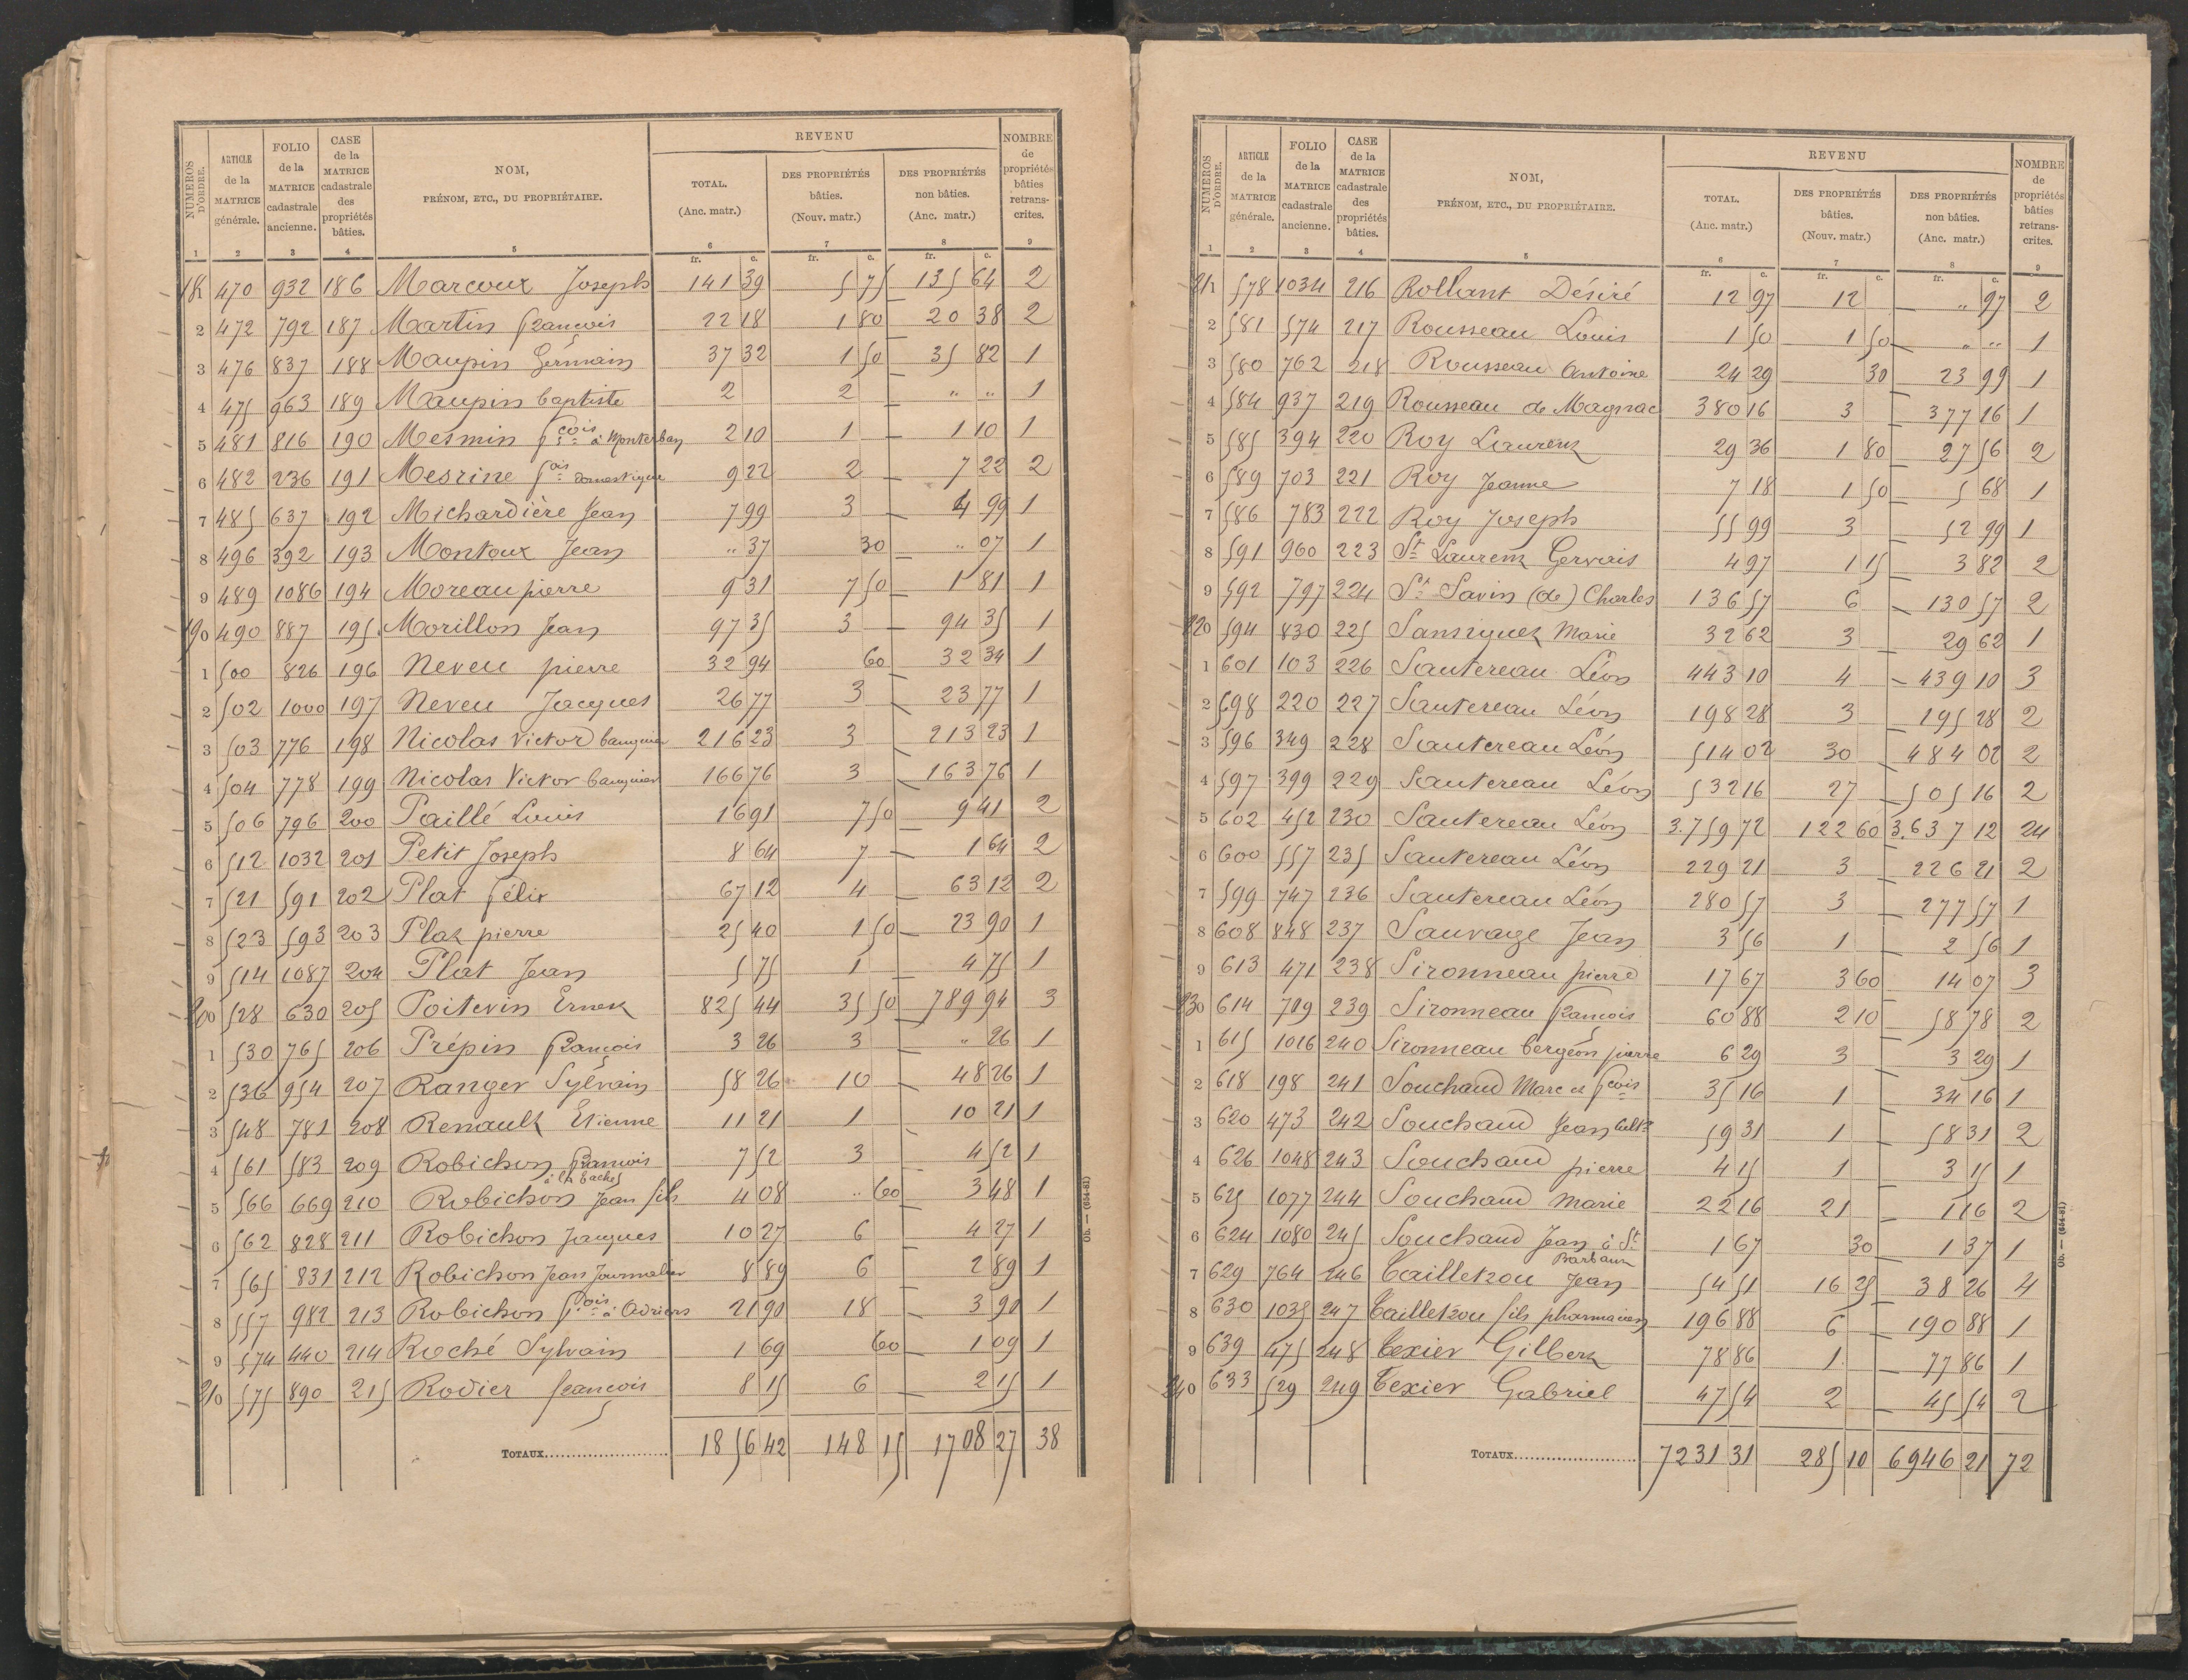 NUMÉROS D'ORDRE. ARTICLE de la MATRICE générale. FOLIO de la MATRICE cadastrale ancienne. CASE de la MATRICE cadastrale des propriétés bâties. NOM, PRÉNOM, ETC., DU PROPRIÉTAIRE. REVENU TOTAL. (Anc. matr.) DES PROPRIÉTÉS bâties. (Nouv. matr.) DES PROPRIÉTÉS non bâties. (Anc. matr.) NOMBRE de propriétés bâties retranscrites.
1 2 3 4 5 6 7 8 9
fr. c. fr. c. fr. c.
470 932 186 Marcoux Joseph 141 39 5 75 135 64 2
2 472 792 187 Martin François 22 18 1 80 20 38 2
3 476 837 188 Maupin Germain 37 32 1 50 35 82 1
4 475 963 189 Maupin baptiste 2 2 " " 1
5 481 816 190 Mesmin fcois à Monterban 2 10 1 1 10 1
6 482 236 191 Mesrine fois domestique 9 22 2 7 22 2
7 485 637 192 Michardière Jean 7 99 3 4 99 1
8 496 392 193 Montoux Jean " 37 30 " 07 1
9 489 1086 194 Moreau pierre 9 31 7 50 1 81 1
190 490 887 195 Morillon Jean 97 35 3 94 35 1
1 500 826 196 Neveu pierre 32 94 60 32 34 1
2 502 1000 197 Neveu Jacques 26 77 3 23 77 1
3 503 776 198 Nicolas Victor banquier 216 23 3 213 23 1
4 504 778 199 Nicolas Victor banquier 166 76 3 163 76 1
5 506 796 200 Paillé Louis 16 91 7 50 9 41 2
6 512 1032 201 Petit Joseph 8 64 7 1 64 2
7 521 591 202 Plat félix 67 12 4 63 12 2
8 523 593 203 Plat pierre 25 40 1 50 23 90 1
9 514 1087 204 Plat Jean 5 75 1 4 75 1
200 528 630 205 Poitevin Ernest 825 44 35 50 789 94 3
1 530 765 206 Prépin françois 3 26 3 " 26 1
2 536 954 207 Ranger Sylvain 58 26 10 48 26 1
3 548 781 208 Renault Etienne 11 21 1 10 21 1
4 561 583 209 Robichon françois 7 52 3 4 52 1
5 566 669 210 Robichon Jean fils 4 08 " 60 3 48 1
6 562 828 211 Robichon Jacques 10 27 6 4 27 1
7 565 831 212 Robichon Jean Journalier 8 89 6 2 89 1
8 557 982 213 Robichon fois à Adriers 21 90 18 3 90 1
9 574 440 214 Roché Sylvain 1 69 60 1 09 1
210 575 890 215 Rodier françois 8 15 6 2 15 1
TOTAUX 1856 42 148 15 1708 27 38
Ob. — (654-81)
NUMÉROS D'ORDRE. ARTICLE de la MATRICE générale. FOLIO de la MATRICE cadastrale ancienne. CASE de la MATRICE cadastrale des propriétés bâties. NOM, PRÉNOM, ETC., DU PROPRIÉTAIRE. REVENU TOTAL. (Anc. matr.) DES PROPRIÉTÉS bâties. (Nouv. matr.) DES PROPRIÉTÉS non bâties. (Anc. matr.) NOMBRE de propriétés bâties retranscrites.
1 2 3 4 5 6 7 8 9
fr. c. fr. c. fr. c.
211 578 1034 216 Rollant Désiré 12 97 12 " 97 2
2 581 574 217 Rousseau Louis 1 50 1 50 " " 1
3 580 762 218 Rousseau Antoine 24 29 30 23 99 1
4 584 937 219 Rousseau de Magnac 380 16 3 377 16 1
5 585 394 220 Roy Laurent 29 36 1 80 27 56 2
6 589 703 221 Roy Jeanne 7 18 1 50 5 68 1
7 586 783 222 Roy Joseph 55 99 3 52 99 1
8 591 960 223 St Laurent Gervais 4 97 1 15 3 82 2
9 592 797 224 St Savin (de) Charles 136 57 6 130 57 2
220 594 830 225 Sansiquet Marie 32 62 3 29 62 1
1 601 103 226 Sautereau Léon 443 10 4 439 10 3
2 598 220 227 Sautereau Léon 198 28 3 195 28 2
3 596 349 228 Sautereau Léon 514 02 30 484 02 2
4 597 399 229 Sautereau Léon 532 16 27 505 16 2
5 602 452 230 Sautereau Léon 3.759 72 122 60 3.637 12 24
6 600 557 235 Sautereau Léon 229 21 3 226 21 2
7 599 747 236 Sautereau Léon 280 57 3 277 57 1
8 608 848 237 Sauvage Jean 3 56 1 2 56 1
9 613 471 238 Sironneau pierre 17 67 3 60 14 07 3
230 614 709 239 Sironneau françois 60 88 2 10 58 78 2
1 615 1016 240 Sironneau bergeon pierre 6 29 3 3 29 1
2 618 198 241 Souchaud Marc et fcois 35 16 1 34 16 1
3 620 473 242 Souchaud Jean cultr 59 31 1 58 31 2
4 626 1048 243 Souchaud pierre 4 15 1 3 15 1
5 625 1077 244 Souchaud Marie 22 16 21 1 16 2
6 624 1080 245 Souchaud Jean à St Barbant 1 67 30 1 37 1
7 629 764 246 Tailletrou Jean 54 51 16 25 38 26 4
8 630 1035 247 Tailletrou fils pharmacien 196 88 6 190 88 1
9 639 475 248 Texier Gilbert 78 86 1 77 86 1
240 633 529 249 Texier Gabriel 47 54 2 45 54 2
TOTAUX 7231 31 285 10 6946 21 72
Ob. — (654-81)